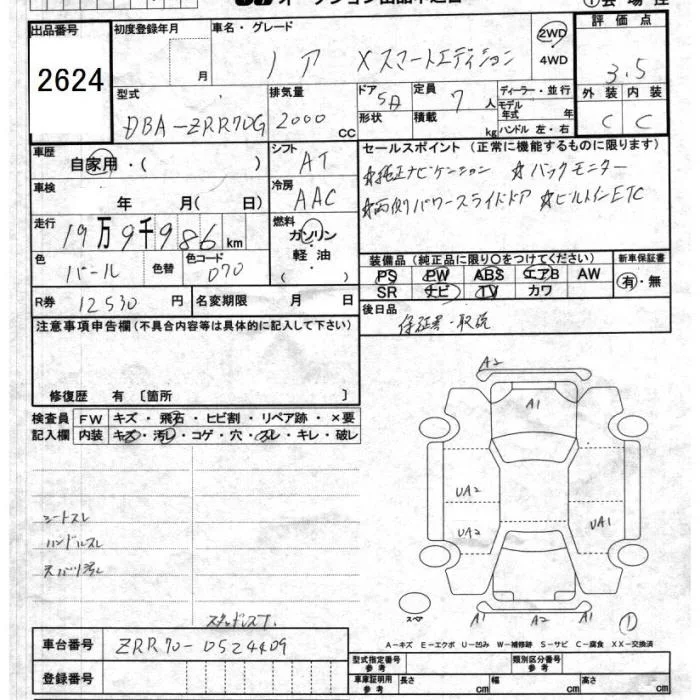 出品番号 初度登録年月 車名・グレード 評価点
2624 月 ノア Xスマートエディション 2WD 4WD 3.5
型式 排気量 ドア 5D 定員 7人 ディーラー・並行 外装 内装
DBA-ZRR70G 2000 CC 形状 積載 kg モデル年式 年 ハンドル 左・右 C C
車歴 自家用・( ) シフト AT セールスポイント (正常に機能するものに限ります)
☆純正ナビゲーション ☆バックモニター
車検 年 月( 日) 冷房 AAC ☆両側パワースライドドア ☆ビルトインETC
走行 19万9千986 km 燃料 ガソリン 軽油 ( )
色 パール 色替 色コード 070 装備品 (純正品に限り○をつけてください) 新車保証書
PS PW ABS エアB AW 有・無
SR ナビ TV カワ
R券 12530 円 名変期限 月 日 後日品 保証書・取説
注意事項申告欄(不具合内容等は具体的に記入して下さい)
修復歴 有 [箇所 ]
検査員 FW キズ・飛石・ヒビ割・リペア跡・×要
記入欄 内装 キズ・汚レ・コゲ・穴・スレ・キレ・破レ
A2
A1
UA2
UA2 UA1
シートスレ
ハンドルスレ
スペア A1 A2 A1 ①
車台番号 ZRR70-0524409
A-キズ E-エクボ U-凹み W-補修跡 S-サビ C-腐食 XX-交換済
登録番号 型式指定番号 参考 類別区分番号 参考
車庫証明用 参考 長さ cm 幅 cm 高さ cm